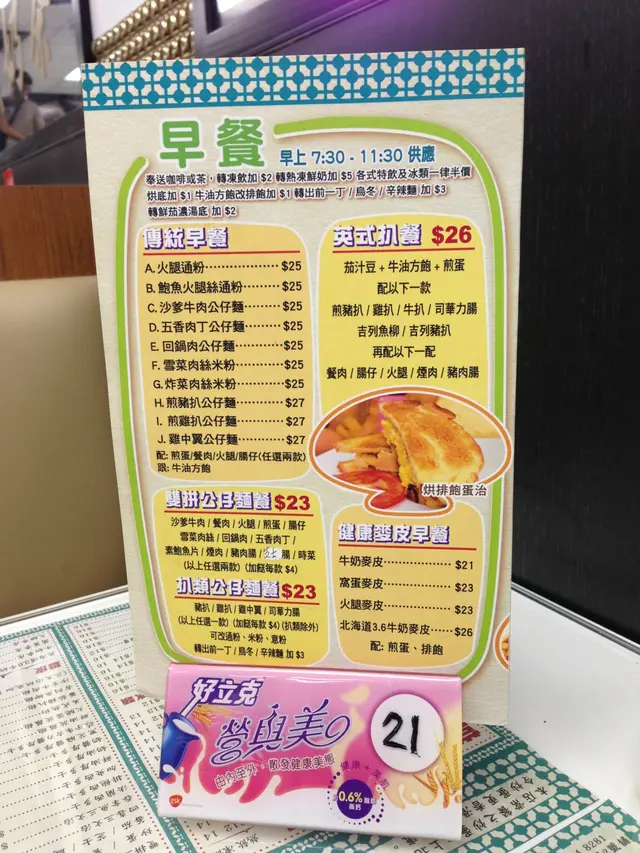 早餐
早上 7:30 - 11:30 供應
奉送咖啡或茶，轉凍飲加 $2 轉熱凍鮮奶加 $5 各式特飲及冰類一律半價
烘底加 $1 牛油方飽改排飽加 $1 轉出前一丁 / 烏冬 / 辛辣麵 加 $3
轉鮮茄濃湯底 加 $2
傳統早餐
A. 火腿通粉 $25
B. 鮑魚火腿絲通粉 $25
C. 沙爹牛肉公仔麵 $25
D. 五香肉丁公仔麵 $25
E. 回鍋肉公仔麵 $25
F. 雪菜肉絲米粉 $25
G. 炸菜肉絲米粉 $25
H. 煎豬扒公仔麵 $27
I. 煎雞扒公仔麵 $27
J. 雞中翼公仔麵 $27
配: 煎蛋/餐肉/火腿/腸仔(任選兩款)
跟: 牛油方飽
英式扒餐 $26
茄汁豆 + 牛油方飽 + 煎蛋
配以下一款
煎豬扒 / 雞扒 / 牛扒 / 司華力腸
吉列魚柳 / 吉列豬扒
再配以下一配
餐肉 / 腸仔 / 火腿 / 煙肉 / 豬肉腸
烘排飽蛋治
雙拼公仔麵餐 $23
沙爹牛肉 / 餐肉 / 火腿 / 煎蛋 / 腸仔
雪菜肉絲 / 回鍋肉 / 五香肉丁 /
素鮑魚片 / 煙肉 / 豬肉腸 / 腸 / 時菜
(以上任選兩款) (加餸每款 $4)
扒類公仔麵餐 $23
豬扒 / 雞扒 / 雞中翼 / 司華力腸
(以上任選一款) (加餸每款 $4) (扒類除外)
可改通粉、米粉、意粉
轉出前一丁 / 烏冬 / 辛辣麵 加 $3
健康麥皮早餐
牛奶麥皮 $21
窩蛋麥皮 $23
火腿麥皮 $23
北海道3.6牛奶麥皮 $26
配: 煎蛋、排飽
好立克
營與美
由內至外，散發健康美態
健康 + 美態
0.6%
高鈣
gsk
21
8281